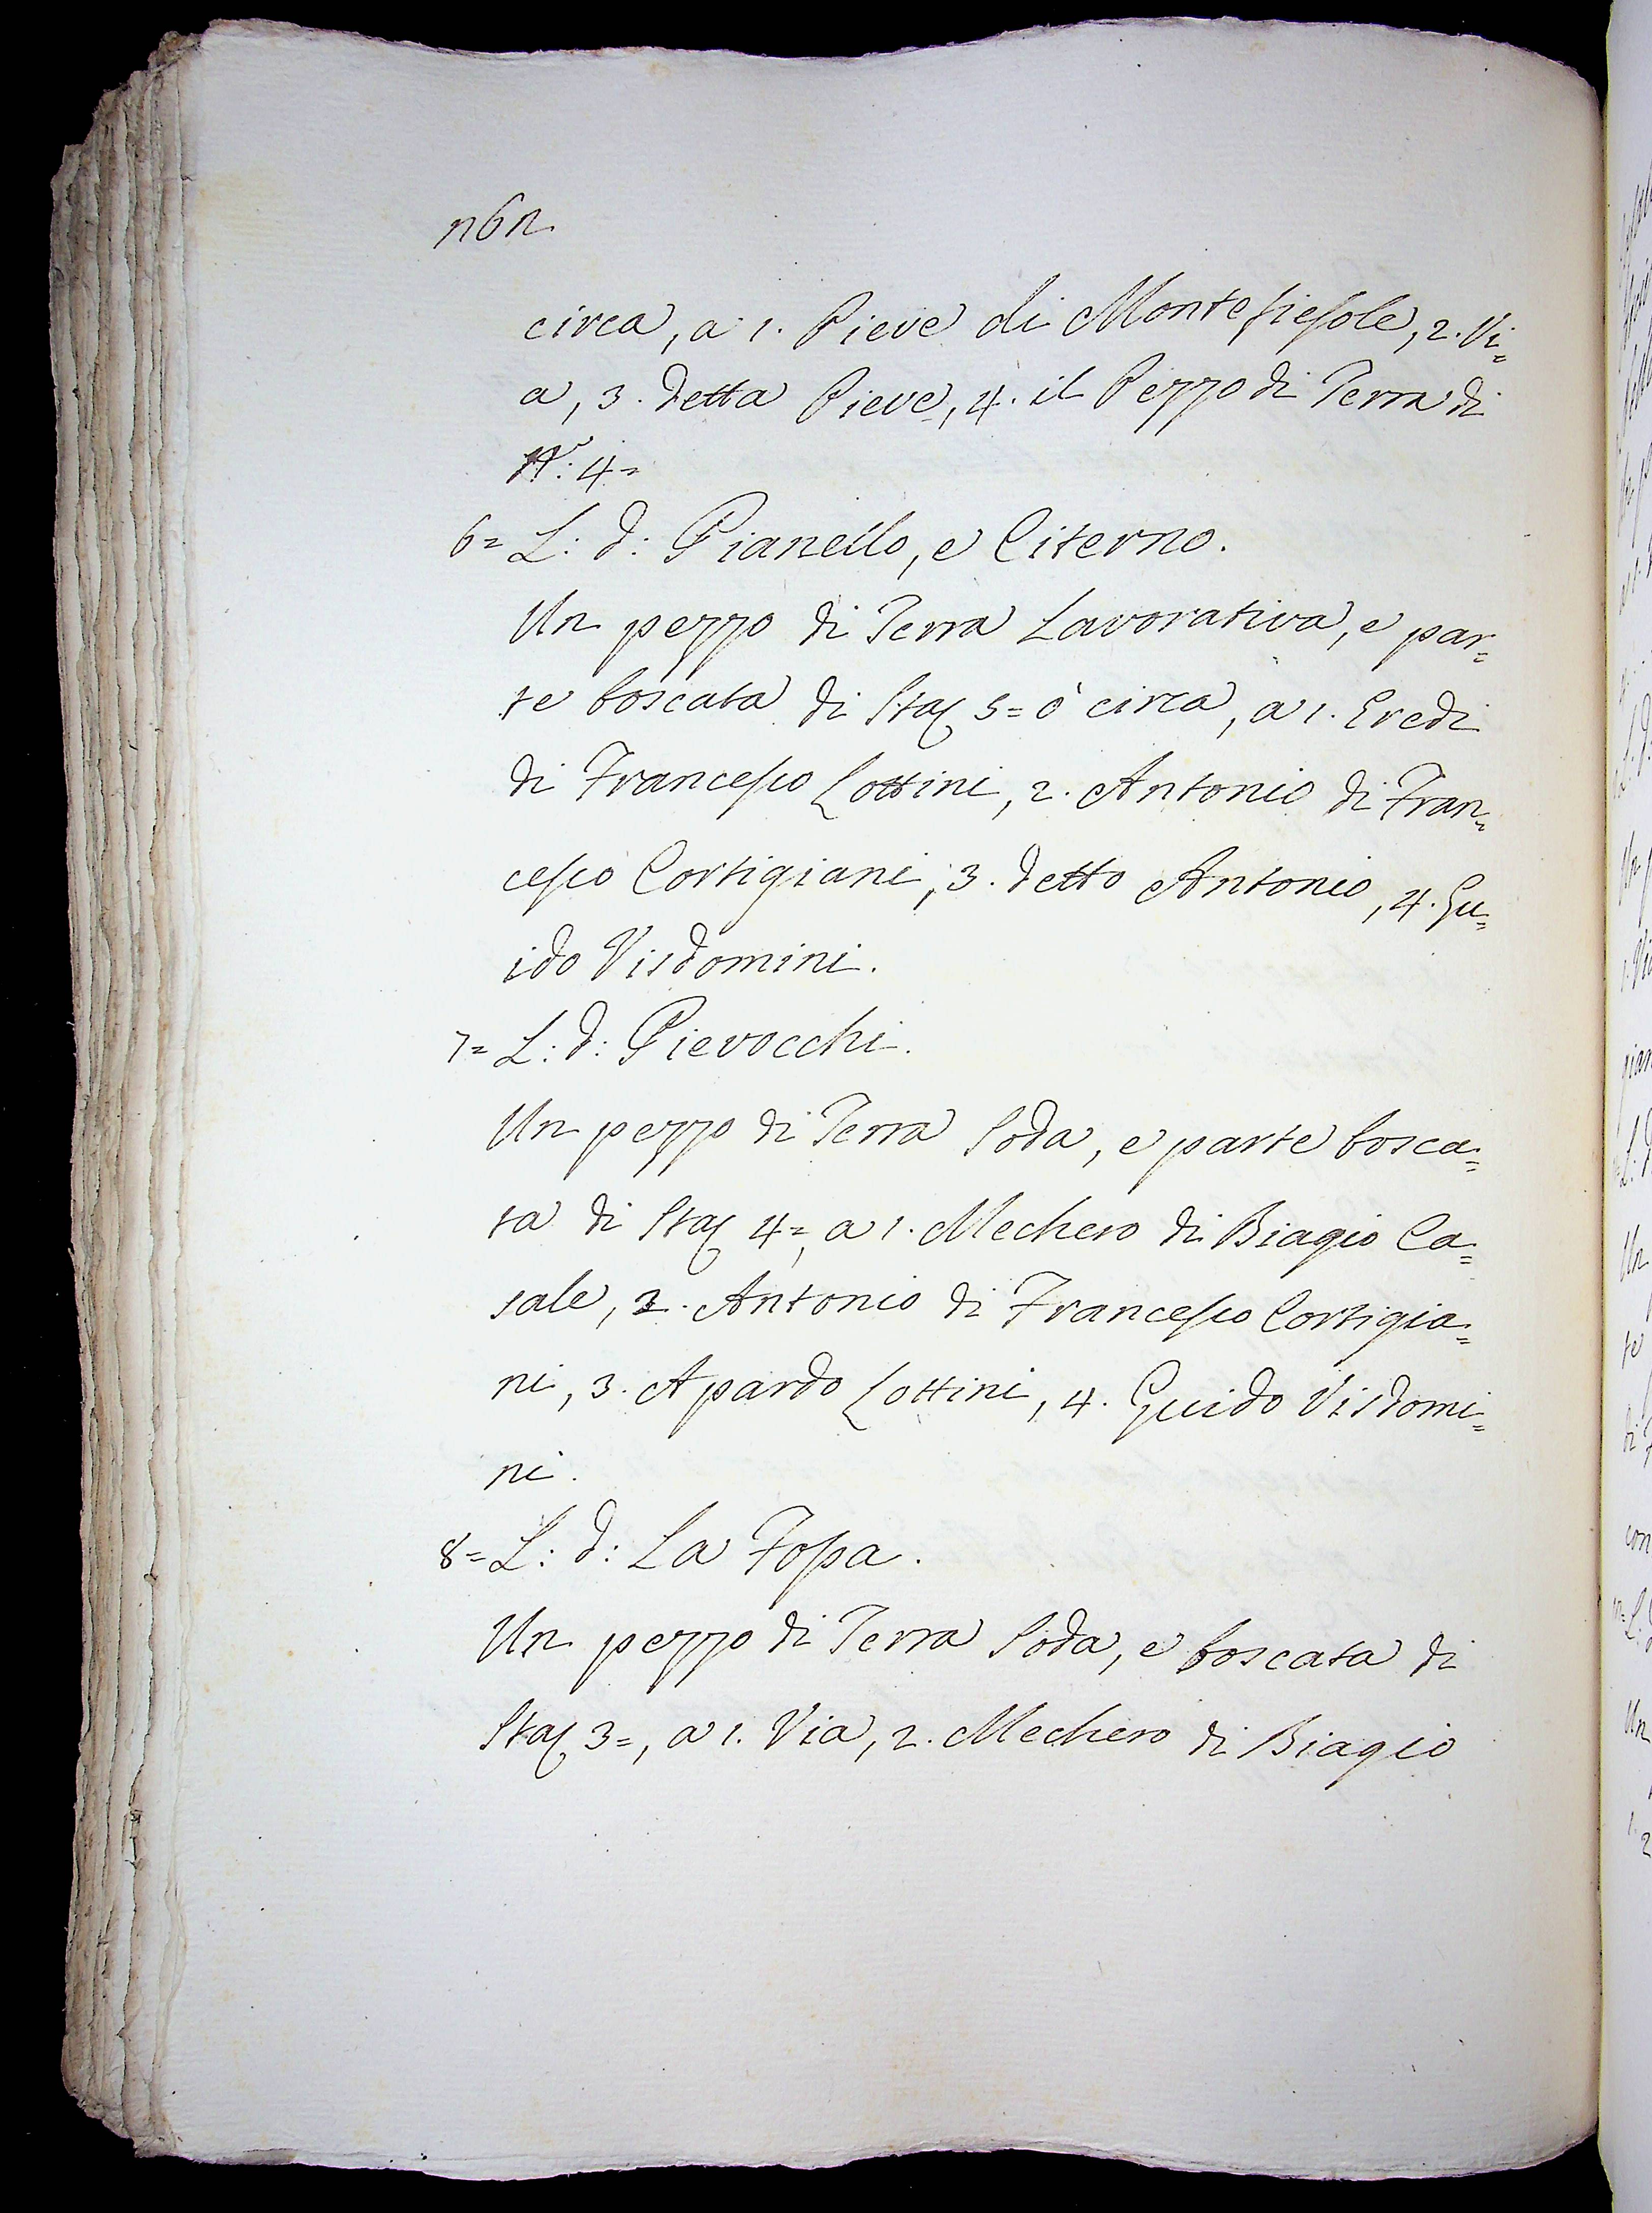 n6n
circa, a 1. Pieve di Montefiesole, 2. Vi=
a, 3. detta Pieve, 4. il Pezzo di Terra di
N.º: 4=
6= L: d: Pianello, e Citerno.
Un pezzo di Terra Lavorativa, e par=
te boscata di Sta 5= ò circa, a 1. Eredi
di Francesco Lottini, 2. Antonio di Fran=
cesco Cortigiani, 3. detto Antonio, 4. Gu=
ido Visdomini.
7= L: d: Pievocchi.
Un pezzo di Terra Soda, e parte bosca=
ta di Sta 4=, a 1. Mechero di Biagio Ca=
sale, 2. Antonio di Francesco Cortigia=
ni, 3. Apardo Lottini, 4. Guido Visdomi=
ni.
8= L: d: La Fossa.
Un pezzo di Terra Soda, e boscata di
Sta 3=, a 1. Via, 2. Mechero di Biagio